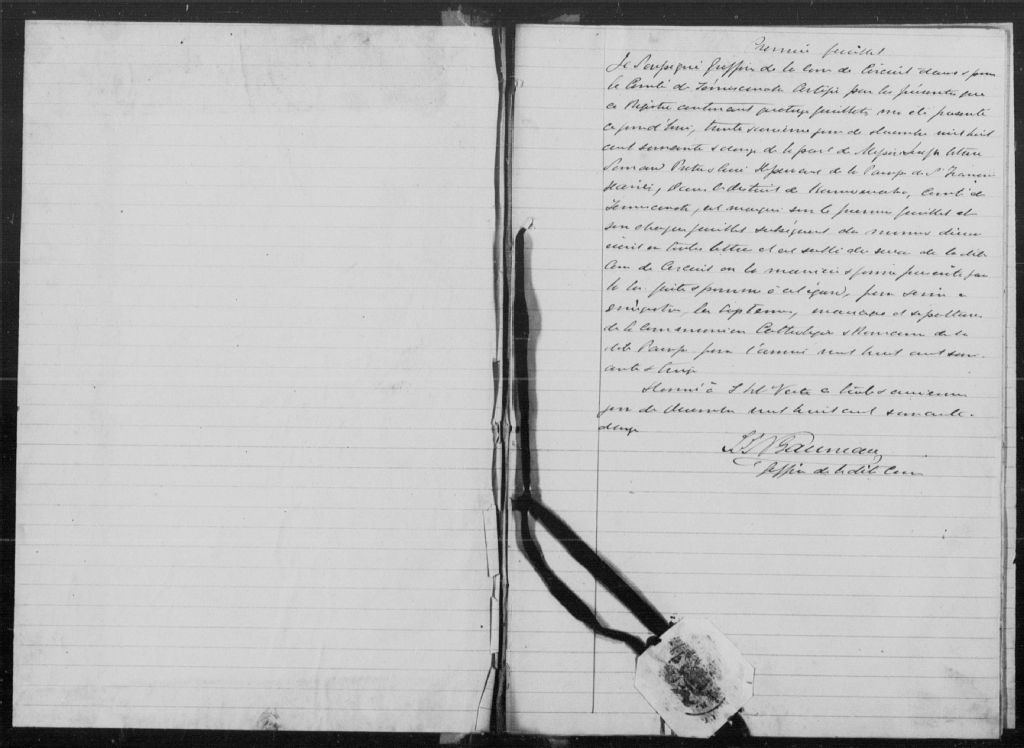 Premier feuillet
Je Soussigné Greffier de la Cour de Circuit dans & pour
le Comté de Témiscouata Certifie par les présentes que
ce Registre contenant quatorze feuillets m'a été présenté
ce jourd'hui, trente jour de décembre mil huit
cent soixante & douze de la part de Messire
Prêtre & Curé de la Paroisse de St François
Xavier, dans le district de Kamouraska, Comté de
Témiscouata, est marqué sur le premier feuillet et
sur chaque feuillet subséquent du numéro
écrit en toutes lettres et est scellé du sceau de la dite
Cour de Circuit en la manière & forme prescrite par
la loi faite & pourvue à cet égard, pour servir à
enregistrer les Baptêmes, mariages et sépultures
de la Communion Catholique & Romaine de la
dite Paroisse pour l'année mil huit cent soix-
ante &
Donné à Isle Verte ce
jour de décembre mil huit cent soixante
douze
Greffier de la dite Cour